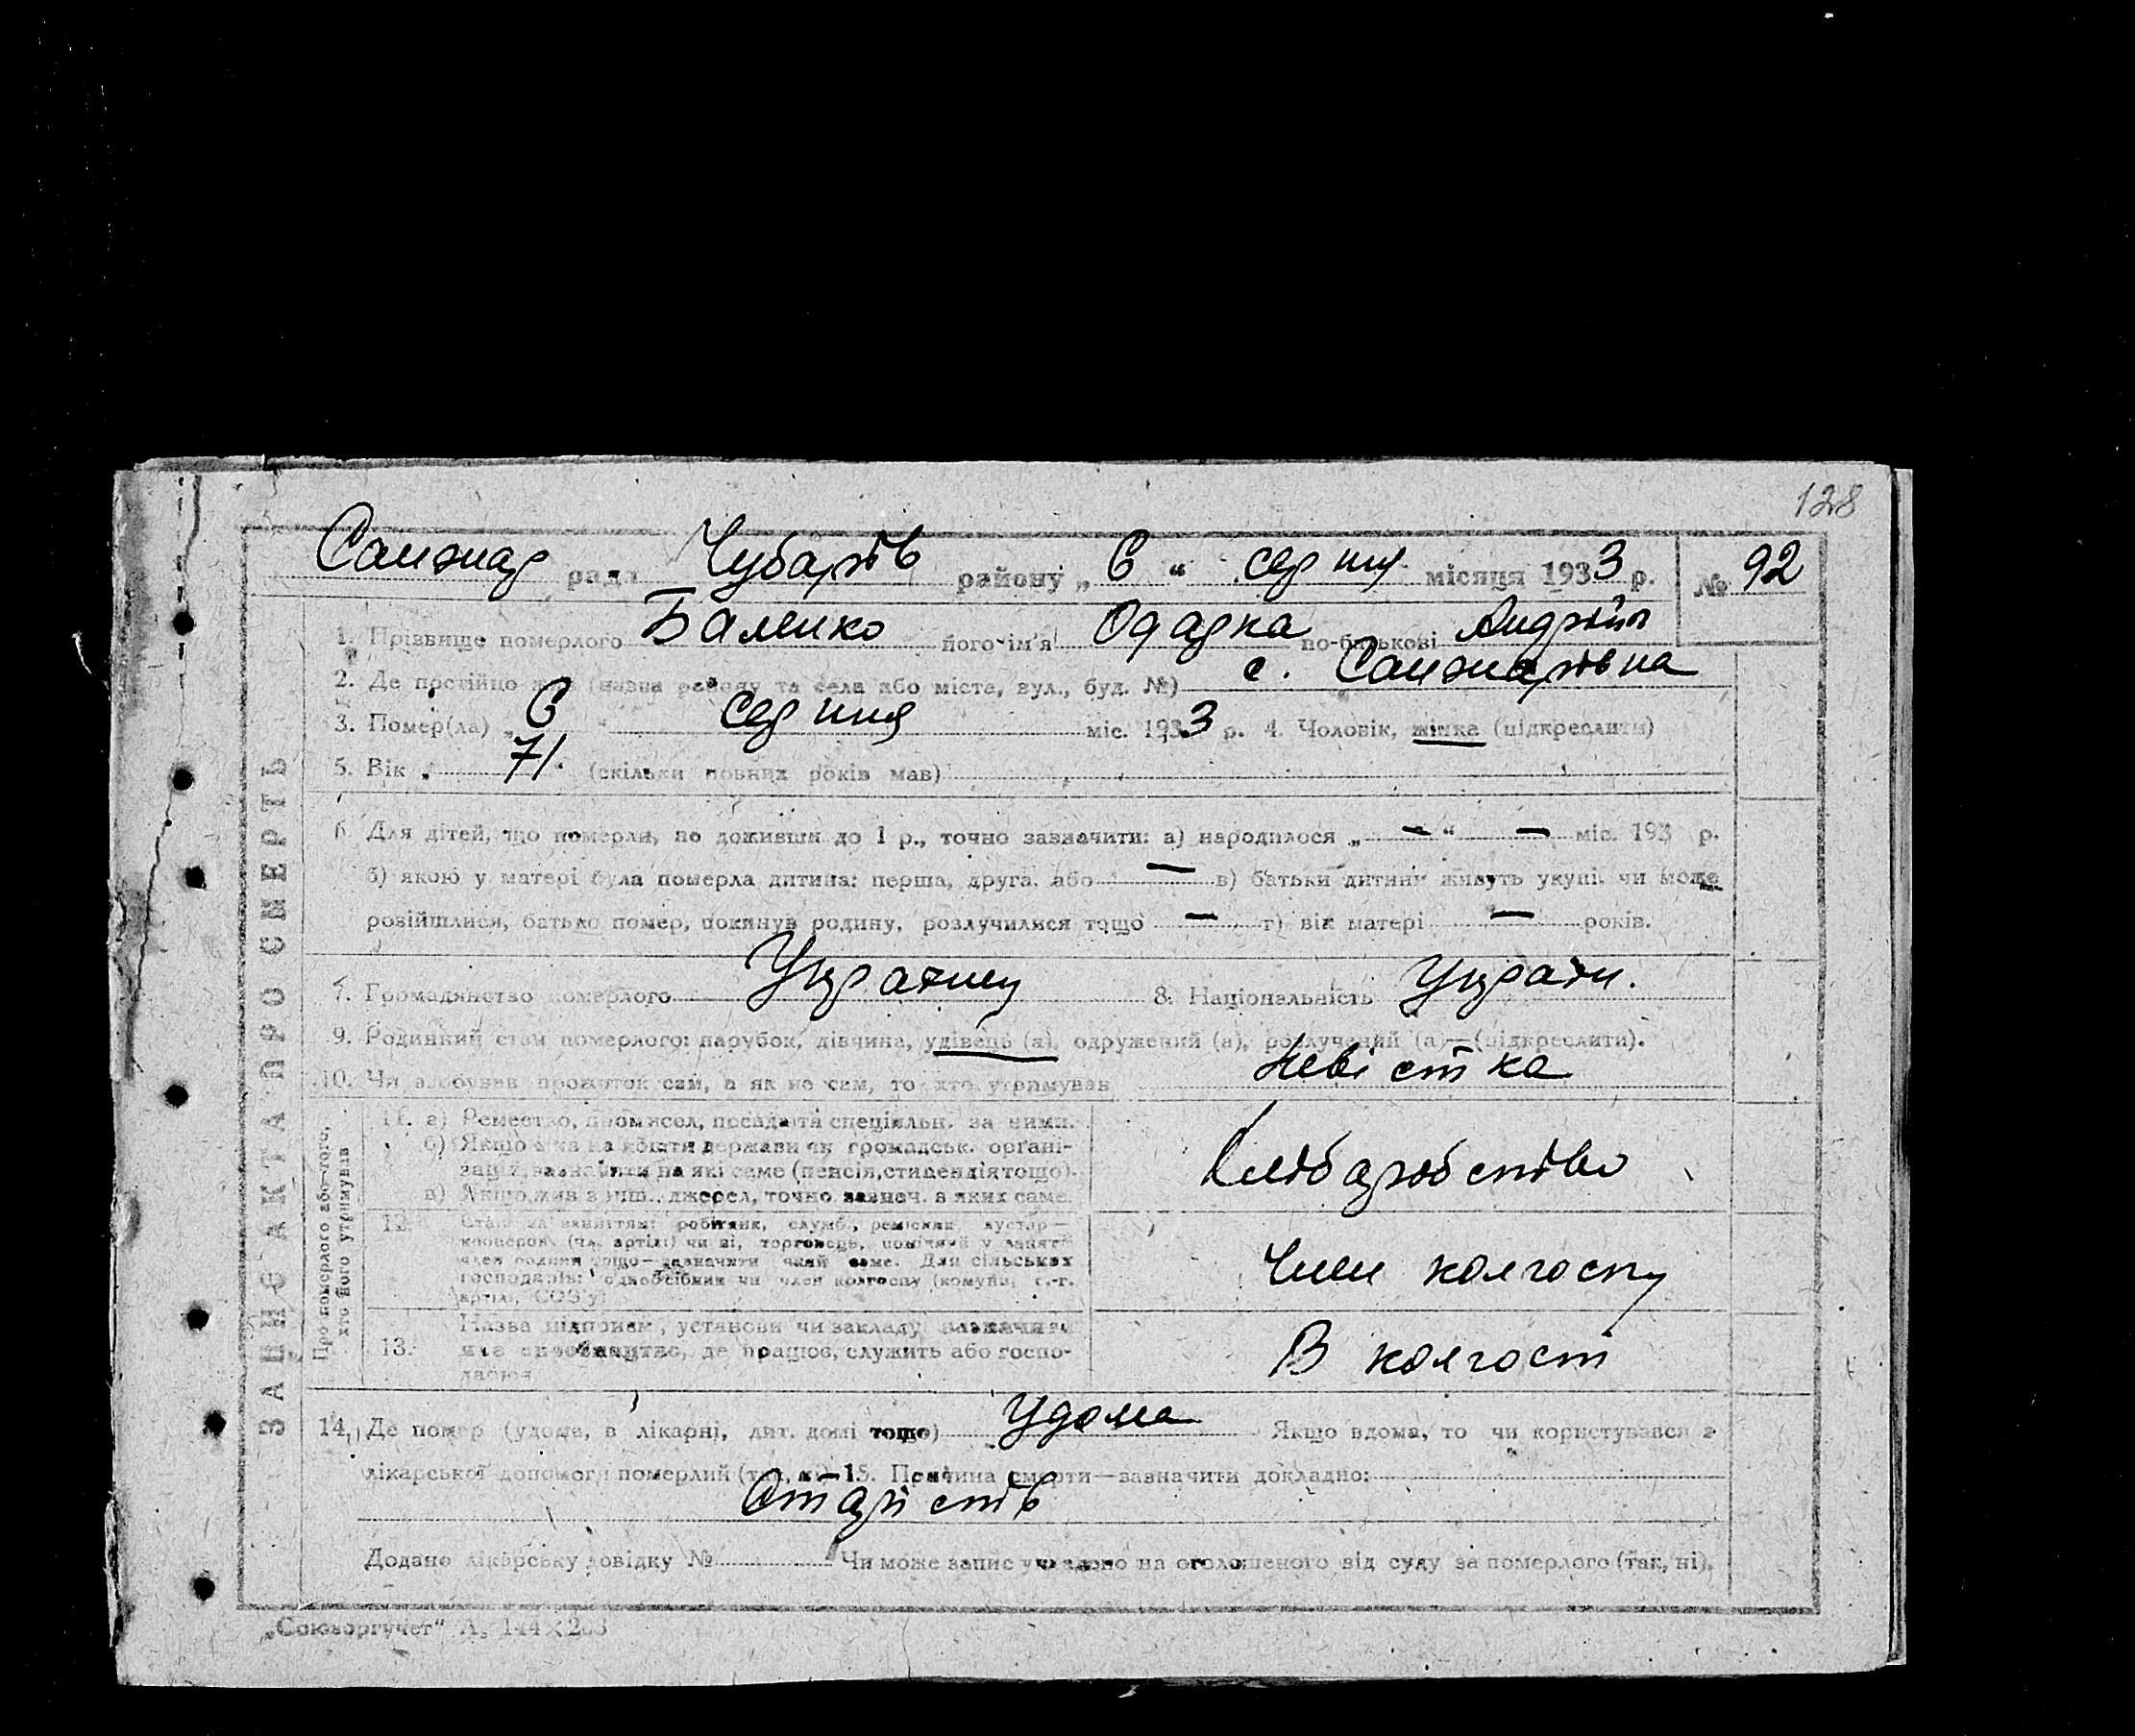 128
Санжар рада Чубарів району „ 6 “ серпня місяця 1933 р. № 92
1. Прізвище померлого Баленко його ім'я Одарка по-батькові Андрій
2. Де постійно жив (назва району та села або міста, вул., буд. №) с. Санжарівка
3. Помер(ла) „ 6 “ серпня міс. 1933 р. 4. Чоловік, жінка (підкреслити)
5. Вік „ 71 “ (скільки повних років мав)
6. Для дітей, що померли, не доживши до 1 р., точно зазначити: а) народилося „ — “ — міс. 193 р.
б) якою у матері була померла дитина: перша, друга, або — в) батьки дитини живуть укупі чи може
розійшлися, батько помер, покинув родину, розлучилися тощо — г) вік матері — років.
7. Громадянство померлого Україну 8. Національність Україн.
9. Родинний стан померлого: парубок, дівчина, удівець (а), одружений (а), розлучений (а)—(підкреслити).
10. Чи здобував прожиток сам, а як не сам, то хто утримував невістка
ЗАПИС АКТА ПРО СМЕРТЬ
Про померлого або того,
хто його утримував
11. а) Ремество, промисел, посада та спеціяльн. за ними.
б) Якщо жив на кошти держави чи громадськ. органі-
зації, зазначити на які саме (пенсія, стипендія тощо).
в) Якщо жив з інш. джерел, точно зазнач. з яких саме.
Хліборобство
12. Стан за заняттям: робітник, служб., ремісник, кустар—
господарів: одноосібник чи член колгоспу (комуни, с.-г.
артілі, СОЗ'у)
Член колгоспу
13. Назва підприєм., установи чи закладу
де працює, служить або госпо-
дарює
В колгосп
14. Де помер (удома, в лікарні, дит. домі тощо) Удома Якщо вдома, то чи користувався з
лікарської допомоги померлий (так, ні)—15. Причина смерти—зазначити докладно:
Старість
Додано лікарську довідку № Чи може запис укладено на оголошеного від суду за померлого (так, ні),
„Союзоргучет“